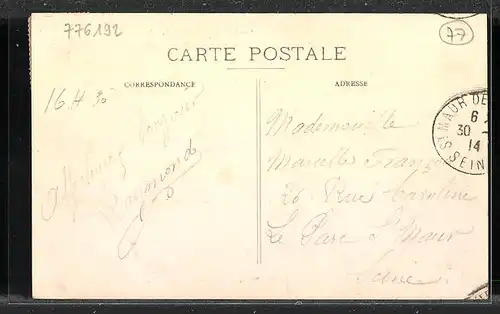 776192
77
CARTE POSTALE
CORRESPONDANCE
ADRESSE
16 H 30
bonjour
Raymond
Mademoiselle
Marcelle
26 Rue Caroline
Le Parc St Maur
Seine
ST MAUR DE
6
30 -
14
SEIN